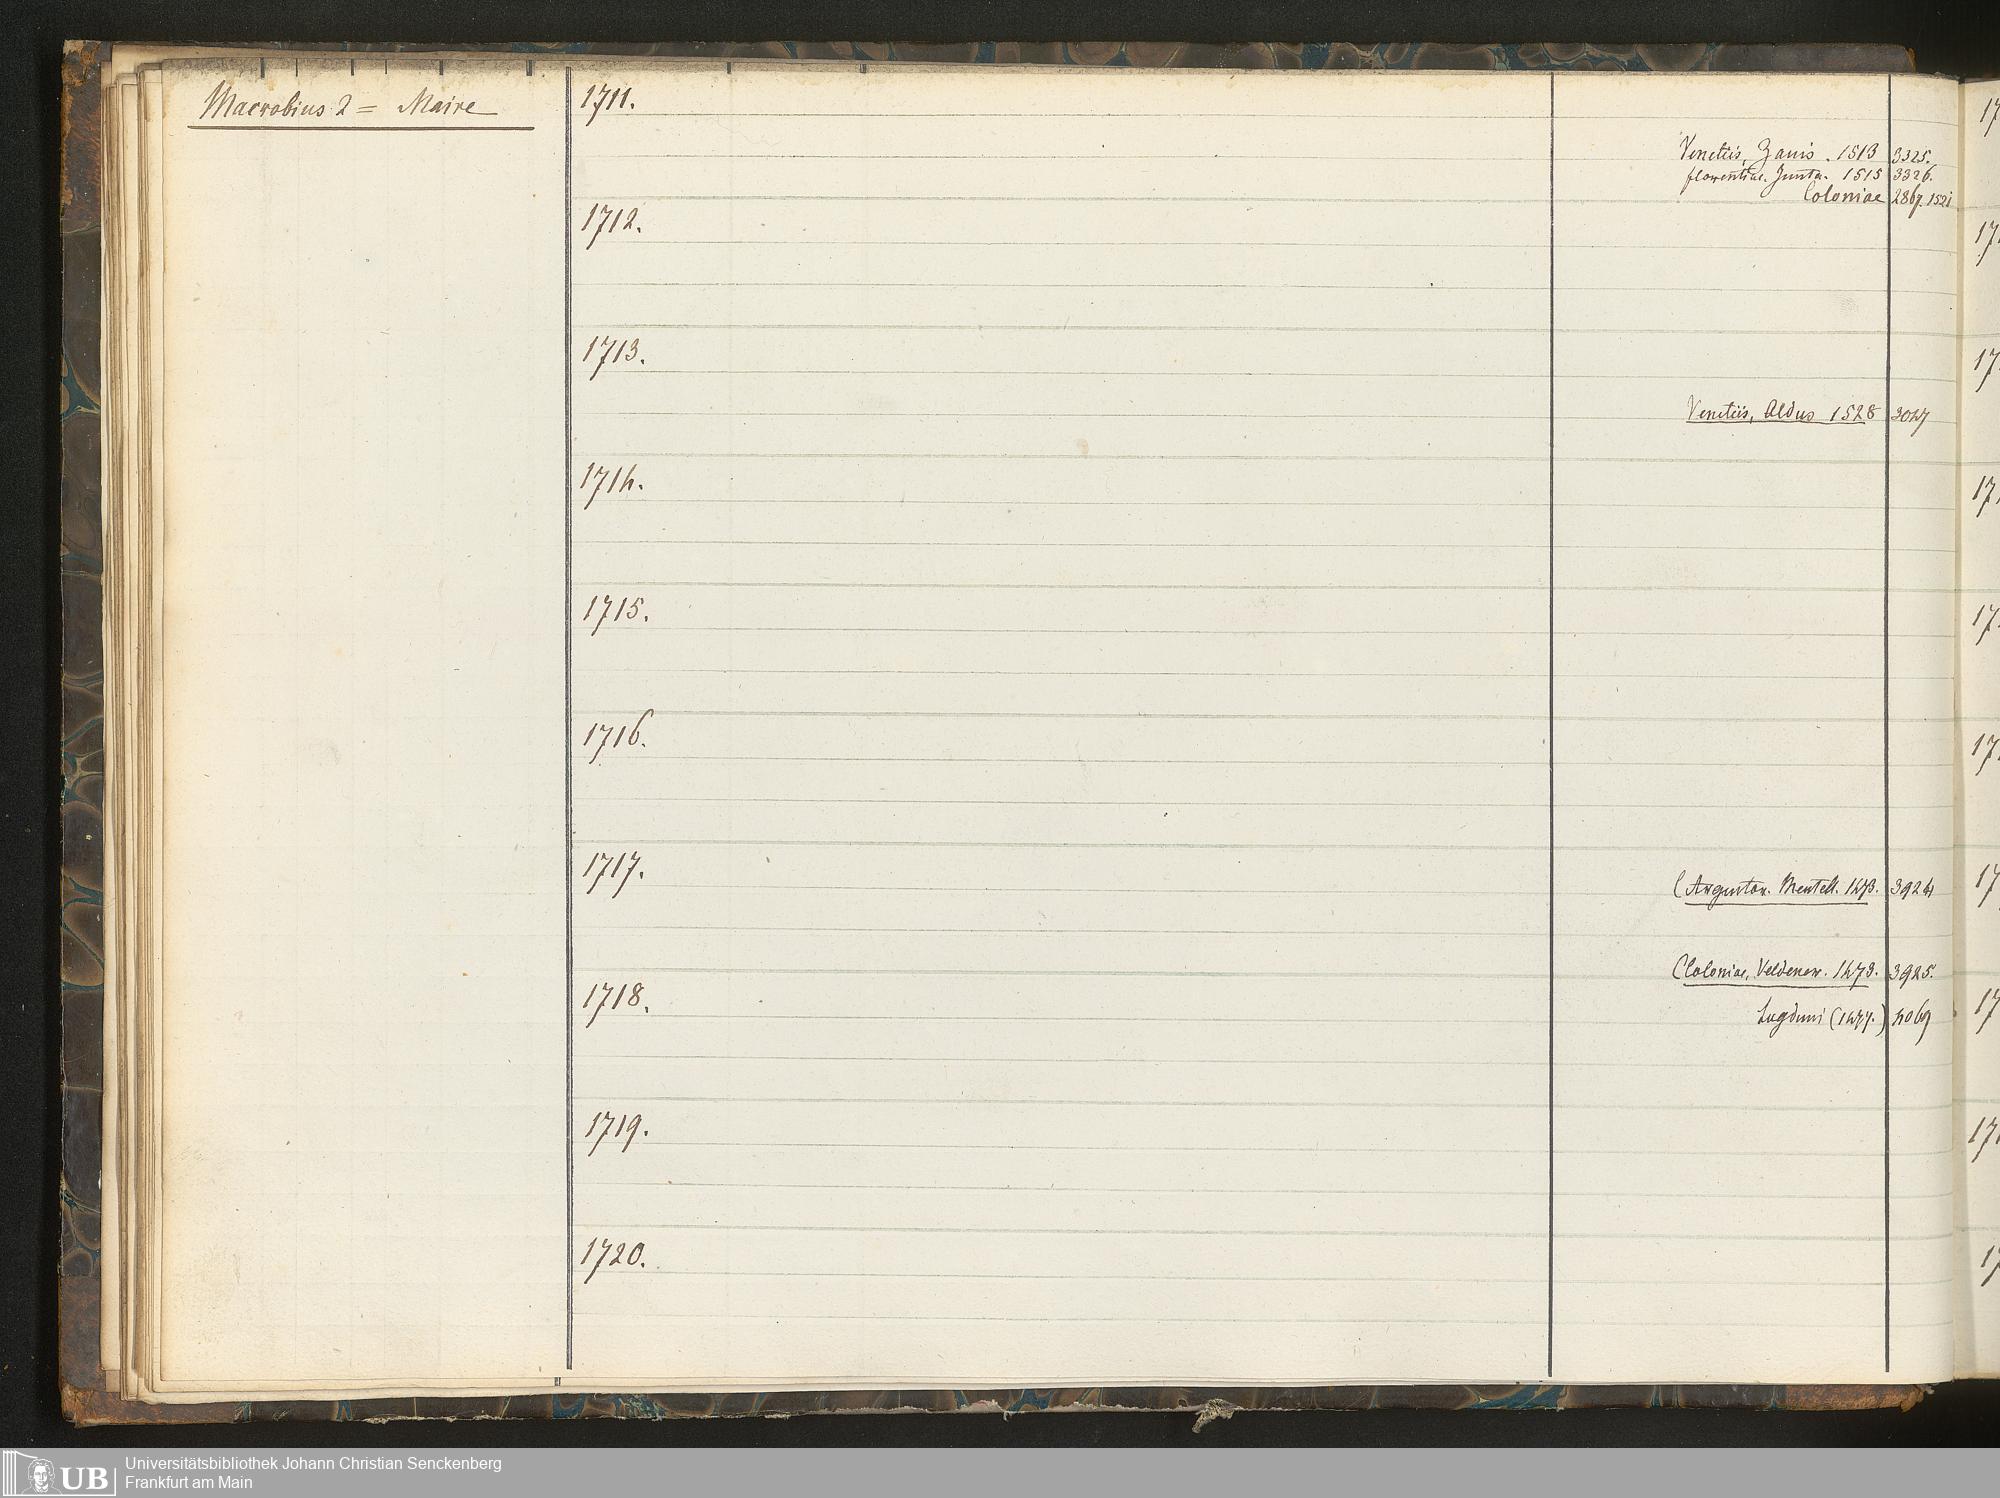 Macrobius 2 = Maire
1711.
Venetiis, Zanis . 1513 3325.
florentiae. Junta. 1515 3326.
Coloniae 2869. 1521
1712.
1713.
Venetiis, Aldus 1528 3047
1714.
1715.
1716.
1717.
(Argentor. Mentell. 1473. 3924
(Coloniae, Veldener. 1473. 3925.
1718.
Lugduni (1477.) 4069
1719.
1720.
17
17
17
17
17
17
17
17
17
17
UB
Universitätsbibliothek Johann Christian Senckenberg
Frankfurt am Main